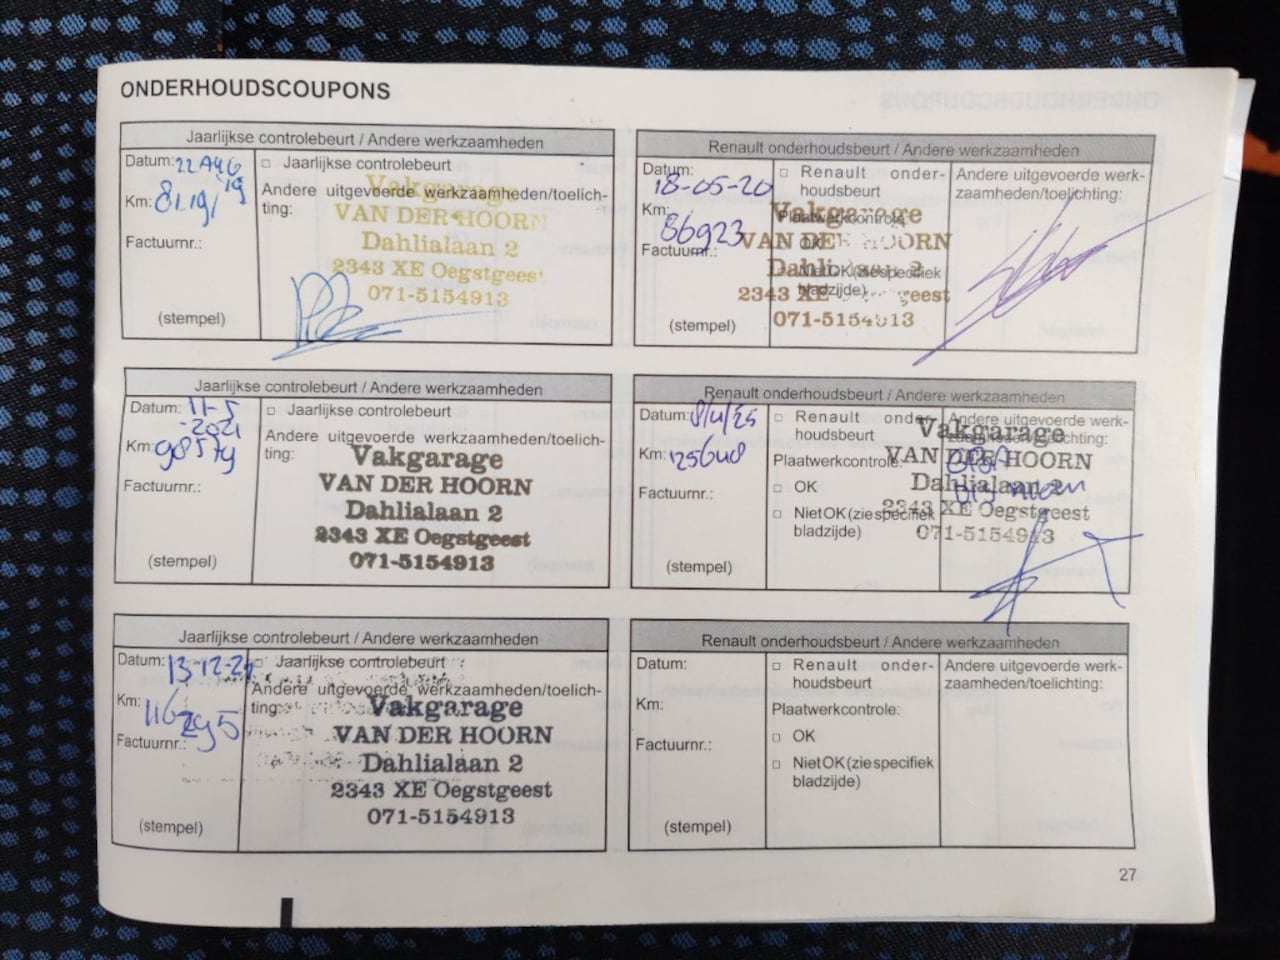 ONDERHOUDSCOUPONS
Jaarlijkse controlebeurt / Andere werkzaamheden
Datum: 22 AUG
'19
Km:
Factuurnr.:
(stempel)
□ Jaarlijkse controlebeurt
Andere uitgevoerde werkzaamheden/toelich-
ting:
Vakgarage
VAN DER HOORN
Dahlialaan 2
2343 XE Oegstgeest
071-5154913
Renault onderhoudsbeurt / Andere werkzaamheden
Datum:
18-05-20
Km:
86923
Factuurnr.:
(stempel)
□ Renault onder-
houdsbeurt
Plaatwerkcontrole:
OK
Niet OK (zie specifiek
bladzijde)
Andere uitgevoerde werk-
zaamheden/toelichting:
Vakgarage
VAN DER HOORN
Dahlialaan 2
2343 XE Oegstgeest
071-5154913
Jaarlijkse controlebeurt / Andere werkzaamheden
Datum: 11-5
-2021
Km: 98579
Factuurnr.:
(stempel)
□ Jaarlijkse controlebeurt
Andere uitgevoerde werkzaamheden/toelich-
ting:
Vakgarage
VAN DER HOORN
Dahlialaan 2
2343 XE Oegstgeest
071-5154913
Renault onderhoudsbeurt / Andere werkzaamheden
Datum:
Km:
Factuurnr.:
(stempel)
□ Renault onder-
houdsbeurt
Plaatwerkcontrole:
□ OK
□ Niet OK (zie specifiek
bladzijde)
Andere uitgevoerde werk-
zaamheden/toelichting:
Vakgarage
VAN DER HOORN
Dahlialaan 2
2343 XE Oegstgeest
071-5154913
Jaarlijkse controlebeurt / Andere werkzaamheden
Datum:
Km: 116295
Factuurnr.:
(stempel)
□ Jaarlijkse controlebeurt
Andere uitgevoerde werkzaamheden/toelich-
ting:
Vakgarage
VAN DER HOORN
Dahlialaan 2
2343 XE Oegstgeest
071-5154913
Renault onderhoudsbeurt / Andere werkzaamheden
Datum:
Km:
Factuurnr.:
(stempel)
□ Renault onder-
houdsbeurt
Plaatwerkcontrole:
□ OK
□ Niet OK (zie specifiek
bladzijde)
Andere uitgevoerde werk-
zaamheden/toelichting:
27